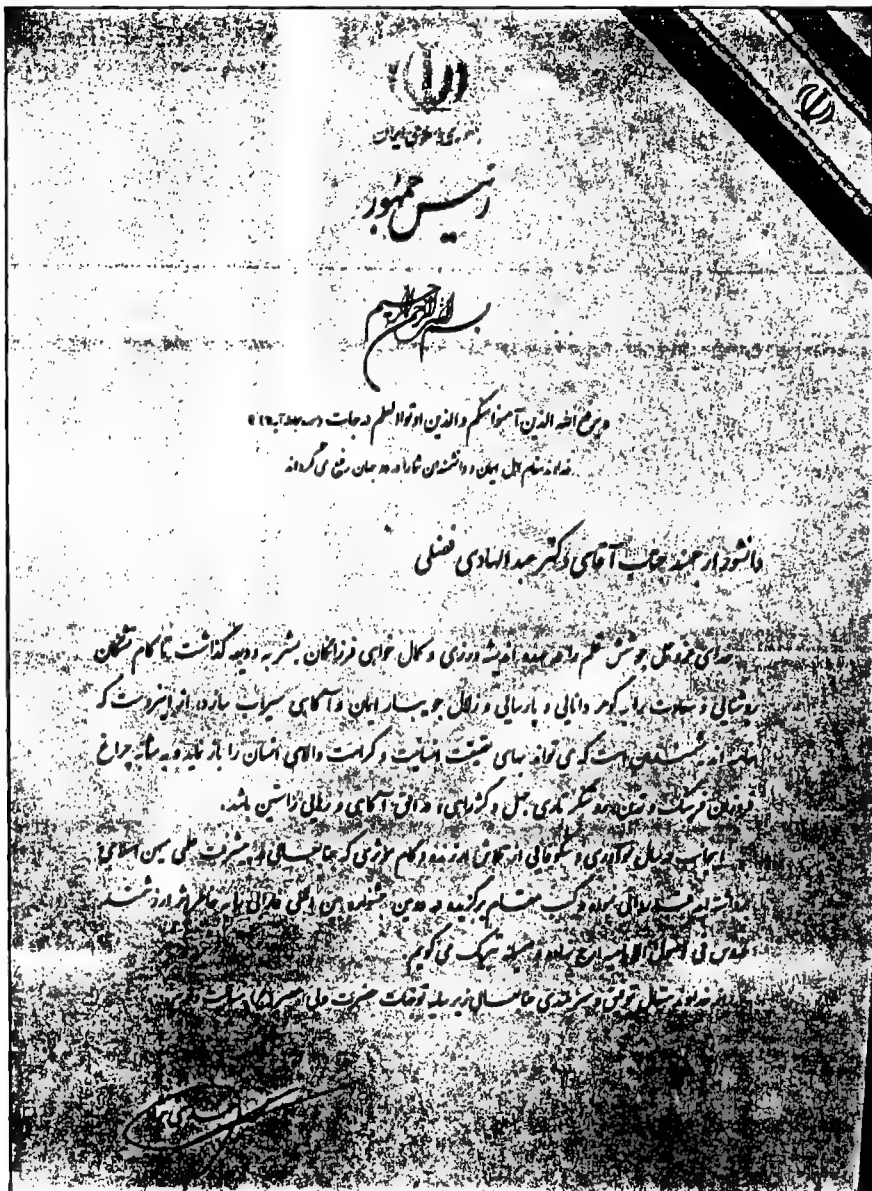 جمهوری اسلامی ایران
رئیس جمهور
بسم الله الرحمن الرحیم
یرفع الله الذین آمنوا منکم والذین اوتوا العلم درجات
خداوند مقام اهل ایمان و دانشمندان شما را در دو جهان رفیع می گرداند
دانشور ارجمند جناب آقای دکتر عبدالهادی فضلی
خدای عزوجل جوشش قلم را در عهده اندیشه ورزی و کمال خواهی فرزانگان بشر به ودیعه گذاشت تا کام تشنگان
روشنائی و سعادت را به گوهر دانائی و پارسائی و زلال جویبار ایمان و آگاهی سیراب سازد، از اینروست که
اندیشمندان است که می تواند بهای حقیقت انسانیت و کرامت والای انسان را باز نماید و به مثابه چراغ
فروزان فرهنگ و تمدن، روشنگر تاریکی جهل و گمراهی، در افق آگاهی و رهائی راستین باشد.
اینجانب در سال نوآوری و شکوفائی از تلاش ارزنده و گام مؤثری که جنابعالی در پیشرفت علمی میهن اسلامی
برداشته اید قدردانی نموده و کسب مقام برگزیده در دومین جشنواره بین المللی فارابی را به خاطر اثر ارزشمند
دروس فی اصول فقه الامامیه ارج نهاده و صمیمانه تبریک می گویم.
از خداوند متعال توفیق و سربلندی جنابعالی زیر سایه توجهات حضرت ولی عصر (عج) مسألت دارم.